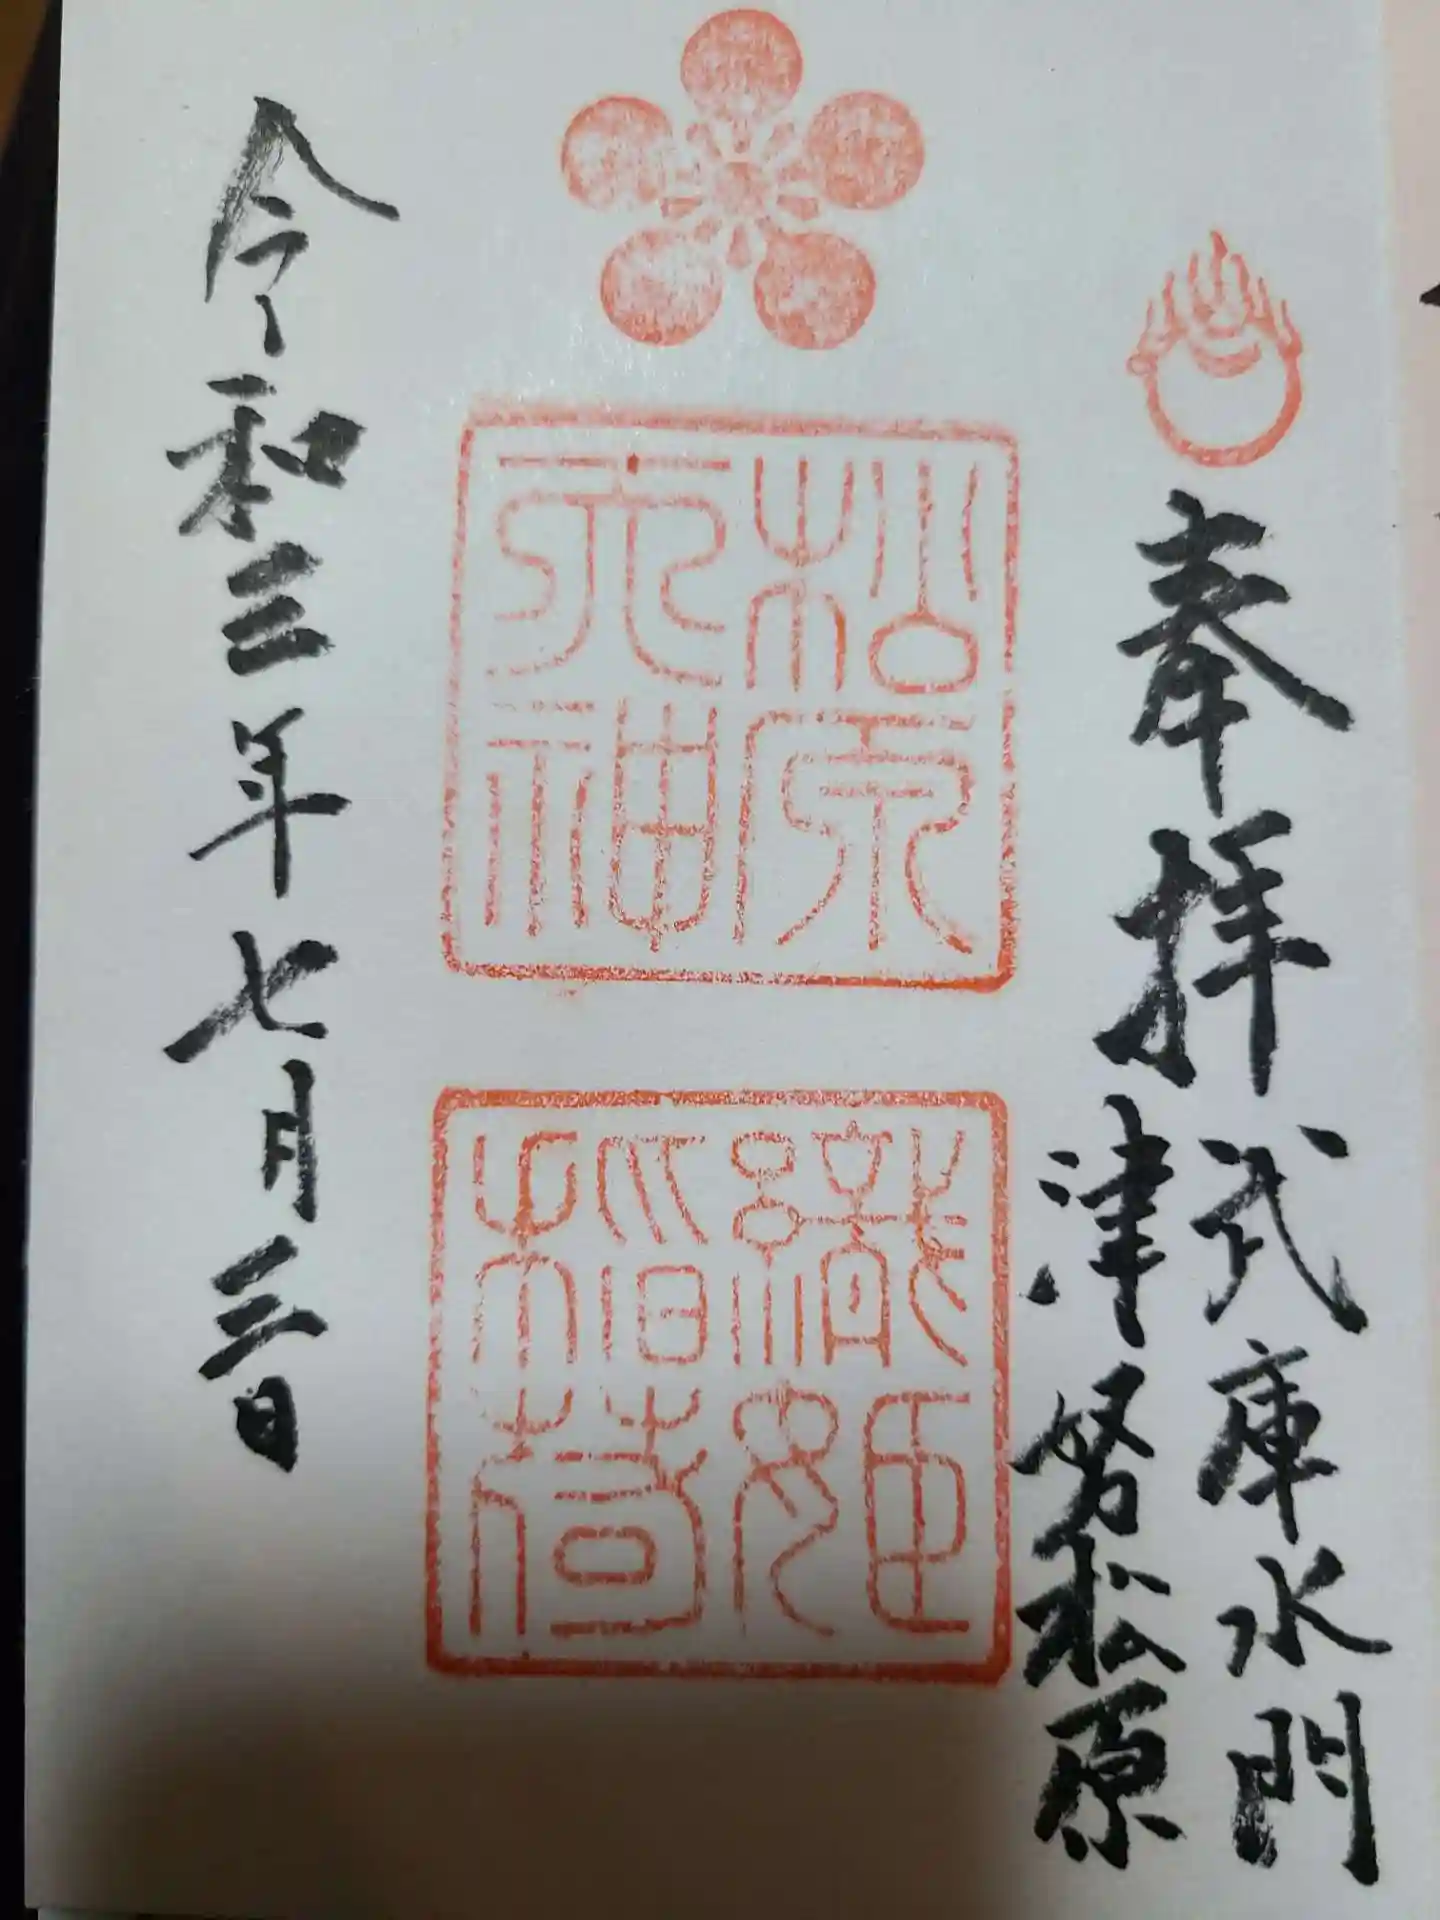 奉拝
武庫水門
津努松原
松原天神
織姫稲荷
令和三年七月三日